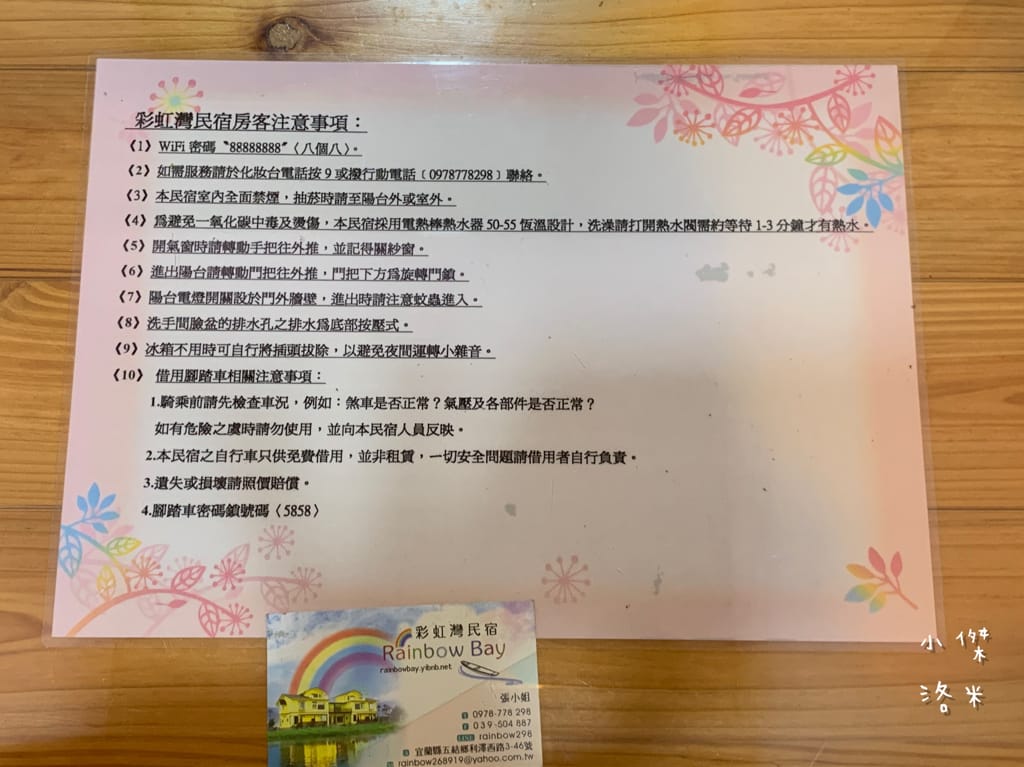 彩虹灣民宿房客注意事項：
《1》 WiFi 密碼〝88888888〞〈八個八〉。
《2》 如需服務請於化妝台電話按 9 或撥行動電話﹝0978778298﹞聯絡。
《3》 本民宿室內全面禁煙，抽菸時請至陽台外或室外。
《4》 為避免一氧化碳中毒及燙傷，本民宿採用電熱棒熱水器 50-55 恆溫設計，洗澡請打開熱水閥需約等待 1-3 分鐘才有熱水。
《5》 開氣窗時請轉動手把往外推，並記得關紗窗。
《6》 進出陽台請轉動門把往外推，門把下方為旋轉門鎖。
《7》 陽台電燈開關設於門外牆壁，進出時請注意蚊蟲進入。
《8》 洗手間臉盆的排水孔之排水為底部按壓式。
《9》 冰箱不用時可自行將插頭拔除，以避免夜間運轉小雜音。
《10》 借用腳踏車相關注意事項：
1.騎乘前請先檢查車況，例如：煞車是否正常？氣壓及各部件是否正常？
如有危險之虞時請勿使用，並向本民宿人員反映。
2.本民宿之自行車只供免費借用，並非租賃，一切安全問題請借用者自行負責。
3.遺失或損壞請照價賠償。
4.腳踏車密碼鎖號碼〈5858〉
彩虹灣民宿
Rainbow Bay
rainbowbay.yibnb.net
張小姐
0978-778 298
039-504 887
LINE rainbow298
宜蘭縣五結鄉利澤西路3-46號
rainbow268919@yahoo.com.tw
小傑
洛米